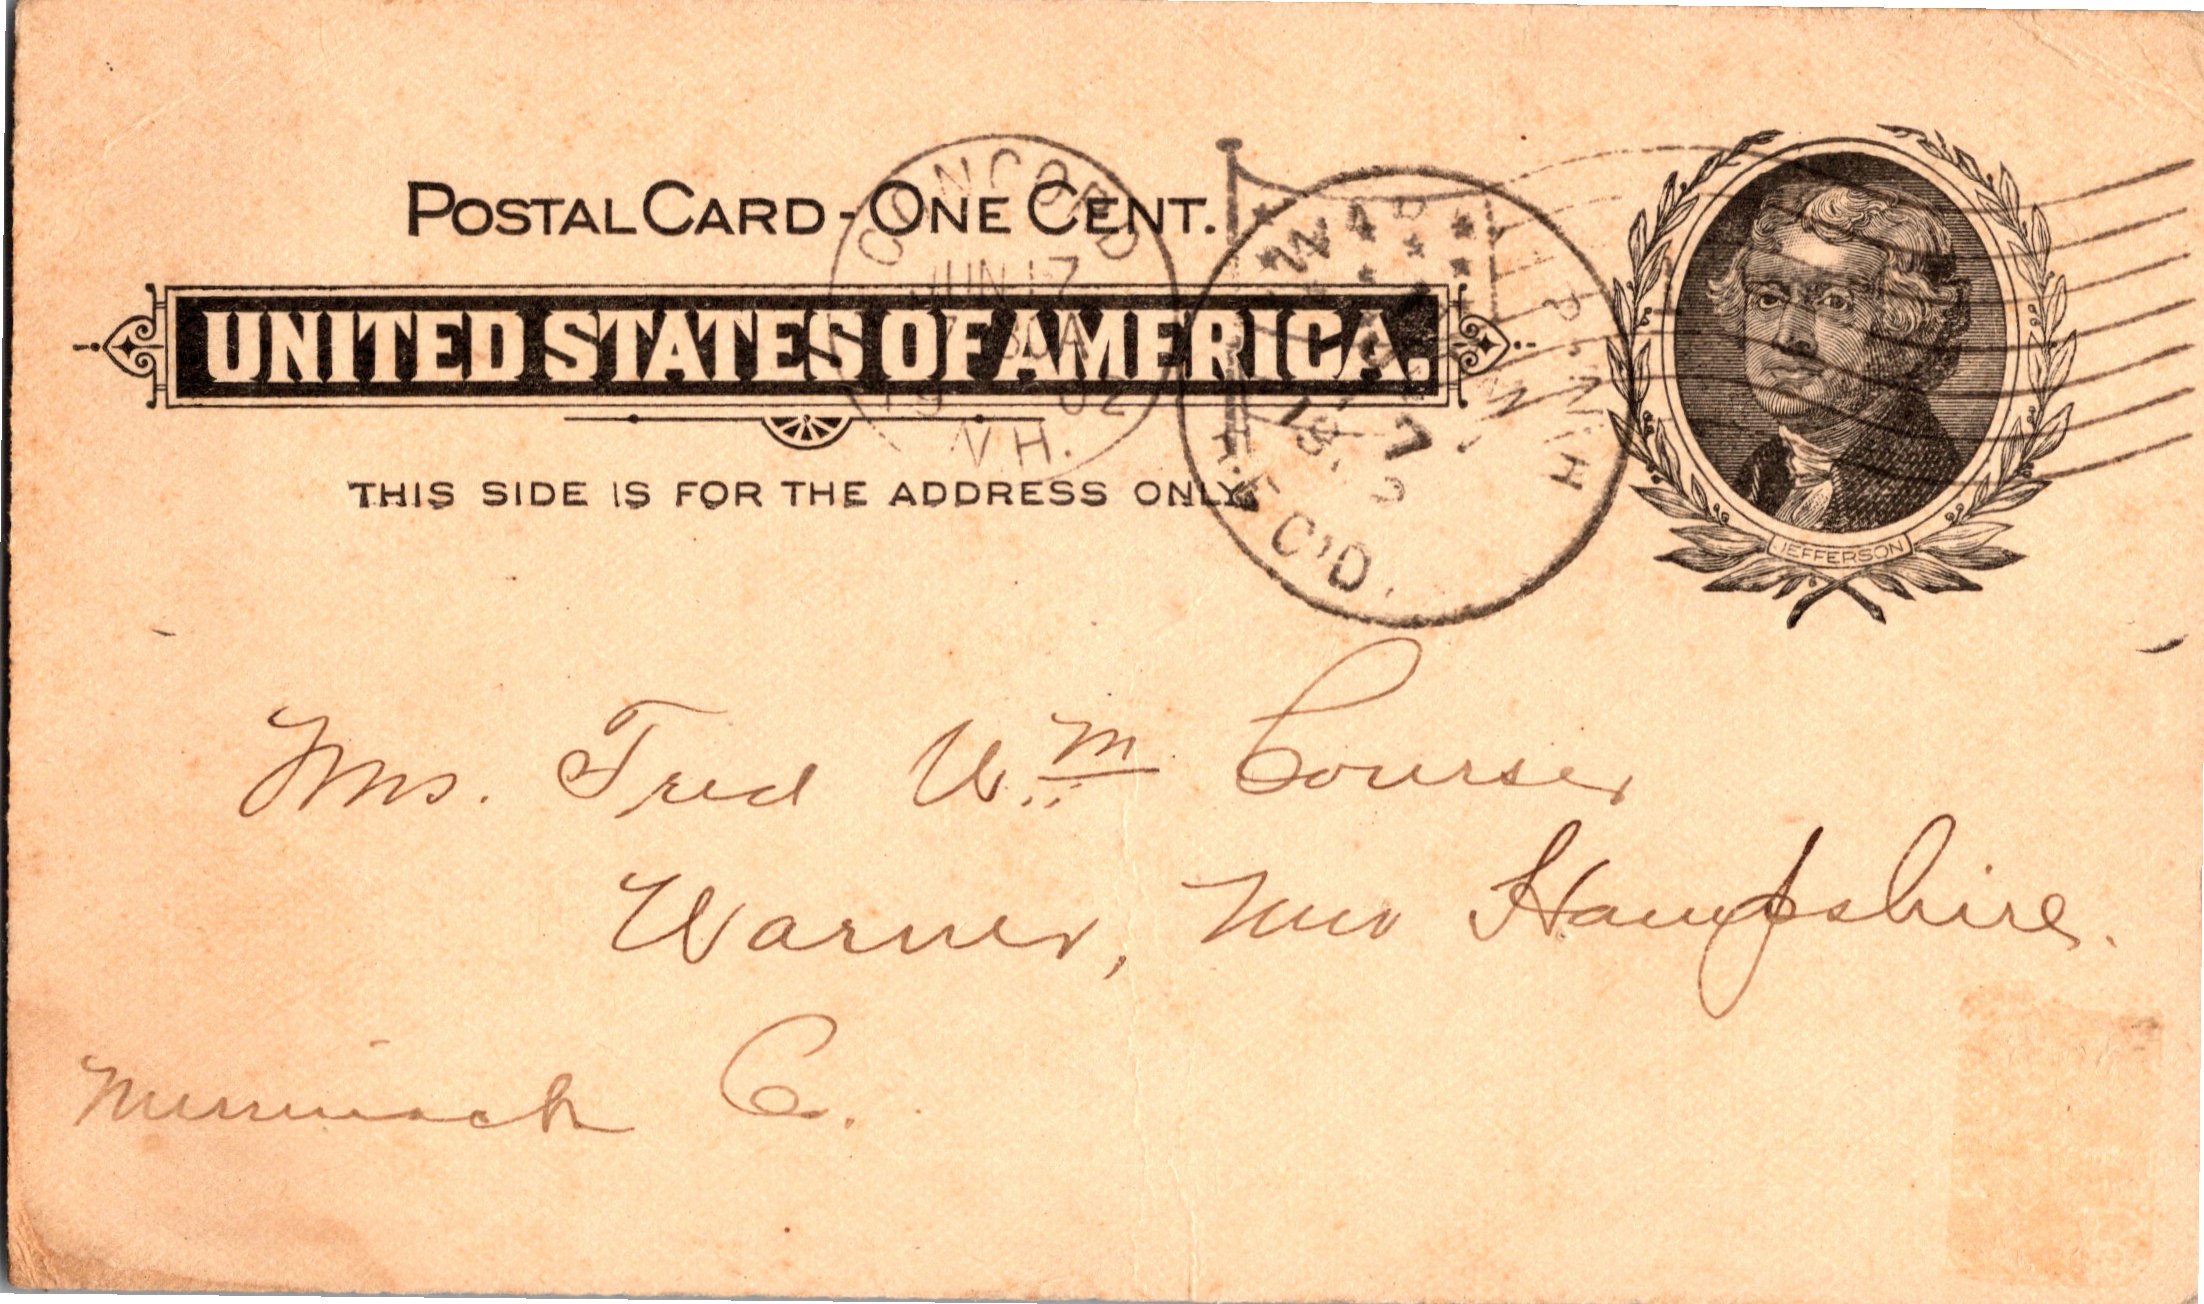 POSTAL CARD - ONE CENT.
UNITED STATES OF AMERICA.
THIS SIDE IS FOR THE ADDRESS ONLY.
CONCORD
JUN 17
7 30A
19 02
N.H.
REC'D.
JEFFERSON
Mrs. Fred Wm. Courser
Warner, New Hampshire.
Merrimack Co.